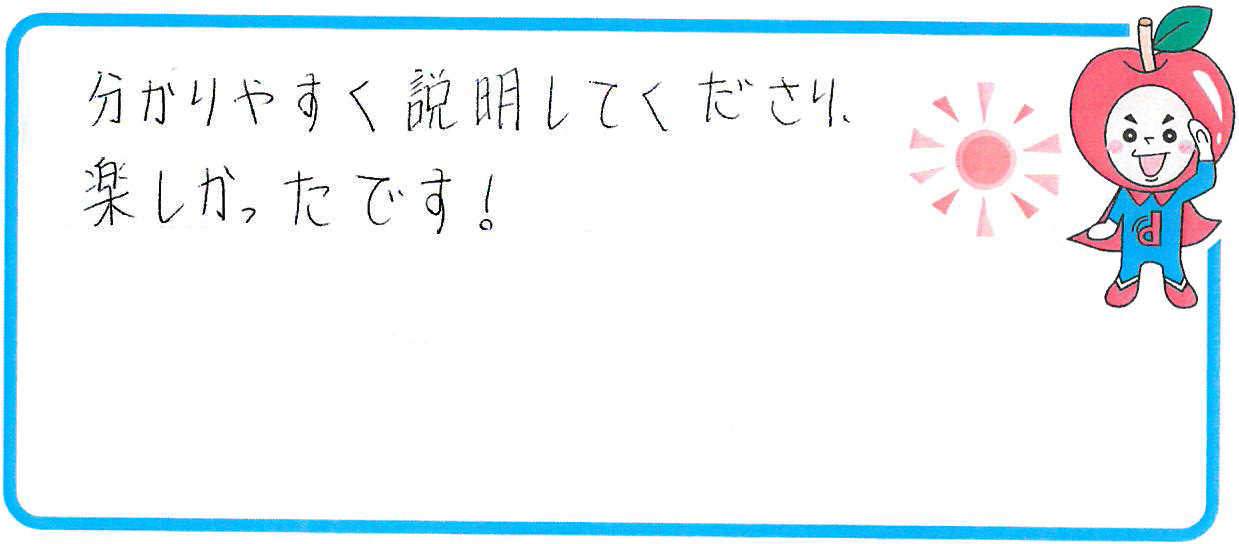 分かりやすく説明してくださり、
楽しかったです!